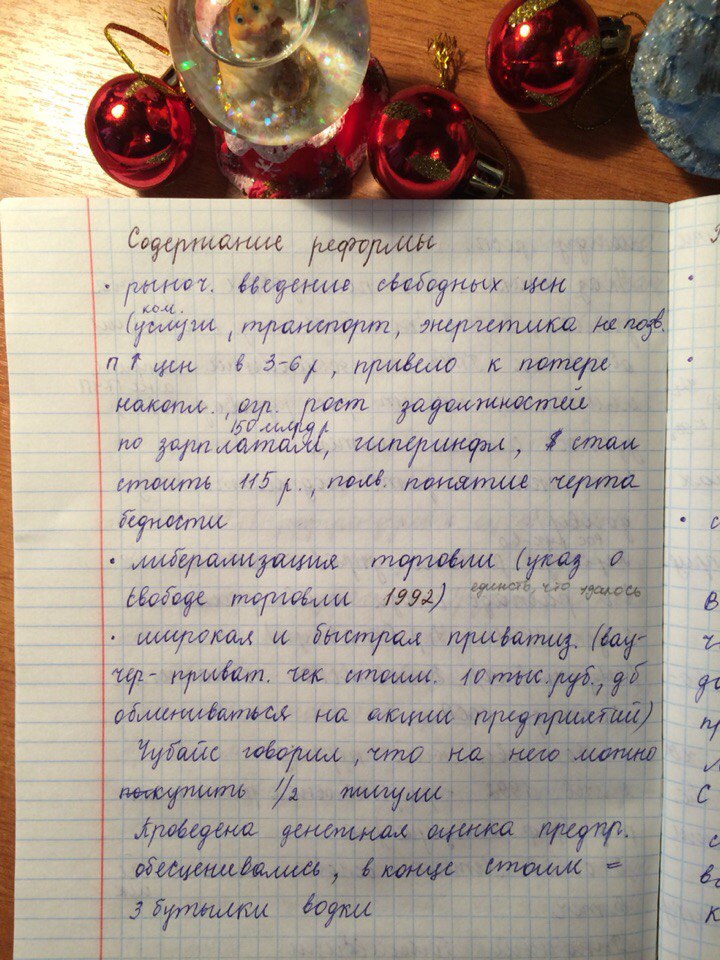 Содержание реформы
· рыноч. введение свободных цен
ком.
(услуги, транспорт, энергетика не позв.
п↑ цен в 3-6 р, привело к потере
накопл., огр. рост задолжностей
150 млрд р
по зарплатам, гиперинфл, $ стал
стоить 115 р., появ. понятие черта
бедности
· либерализация торговли (указ о
свободе торговли 1992) единств, что удалось
· широкая и быстрая приватиз. (вау-
чер-приват. чек стоим. 10 тыс. руб., д б
обмениваться на акции предприятий)
Чубайс говорил, что на него можно
купить 1/2 жигули
Проведена денежная оценка предпр.
обесценивались, в конце стоим =
3 бутылки водки